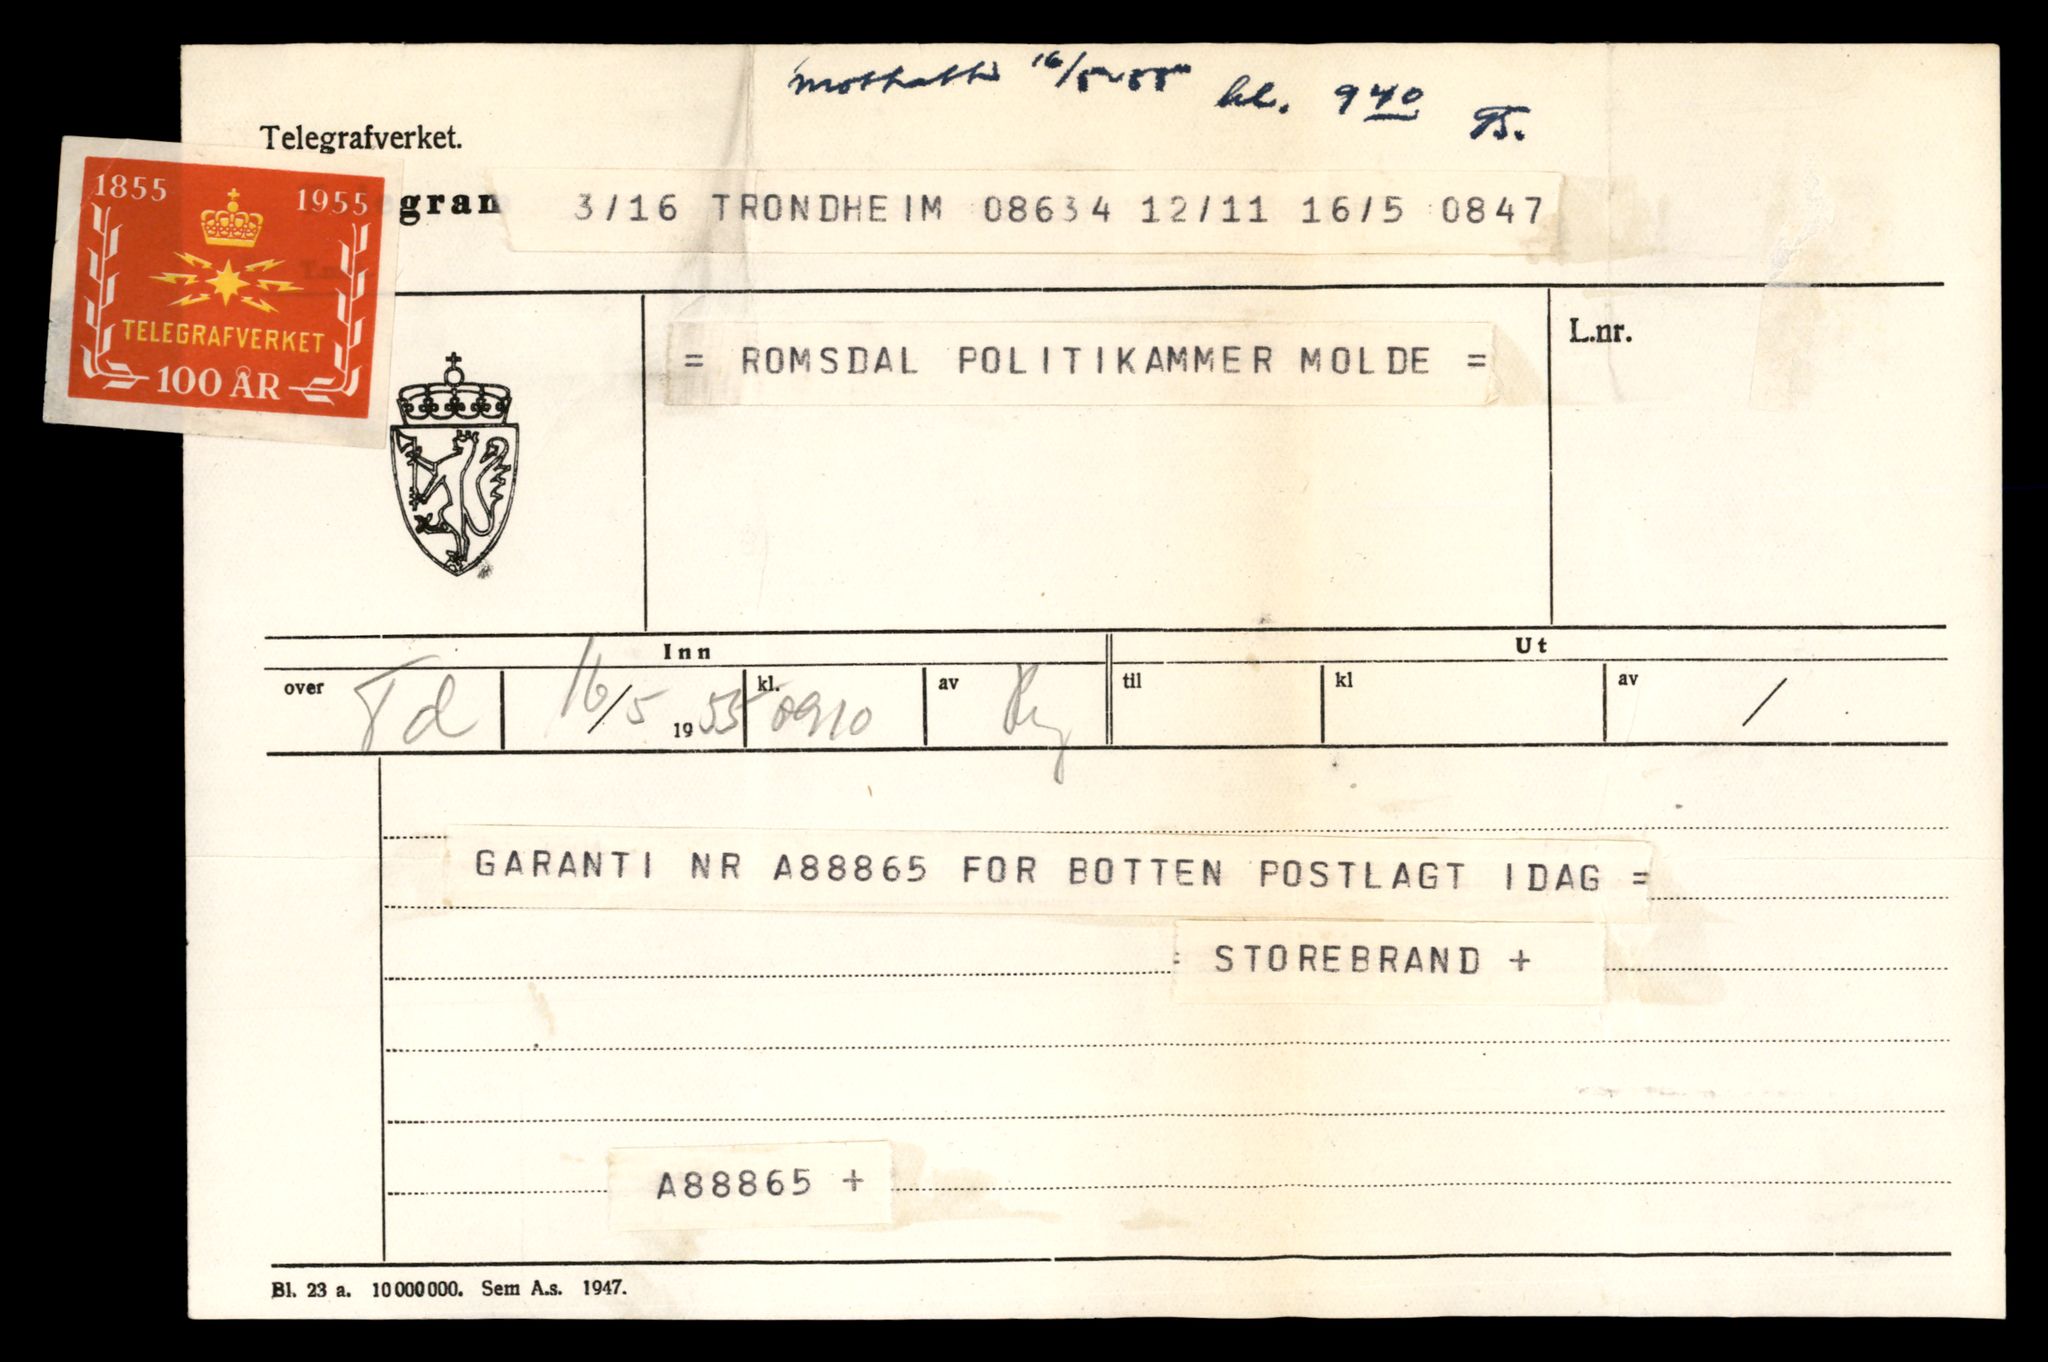 mottatt 16/5-55 kl. 940
Telegrafverket.
1855 1955
TELEGRAFVERKET
100 ÅR
egram 3/16 TRONDHEIM 08634 12/11 16/5 0847
= ROMSDAL POLITIKAMMER MOLDE =
L.nr.
Inn Ut
over Td 16/5 1955 kl. 0910 av til kl av /
GARANTI NR A88865 FOR BOTTEN POSTLAGT IDAG =
= STOREBRAND +
A88865 +
Bl. 23 a. 10000000. Sem A.s. 1947.